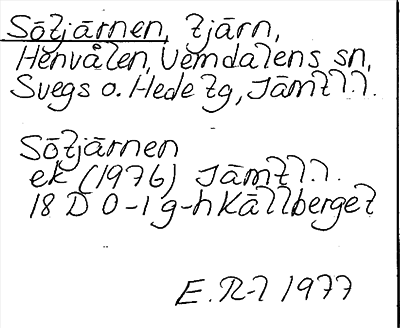 Sötjärnen, tjärn,
Henvålen, Vemdalens sn,
Svegs o. Hede tg, Jämtl.l.
Sötjärnen
ek (1976) Jämtl.l.
18 D 0-1 g-h Källberget
E. R-l 1977